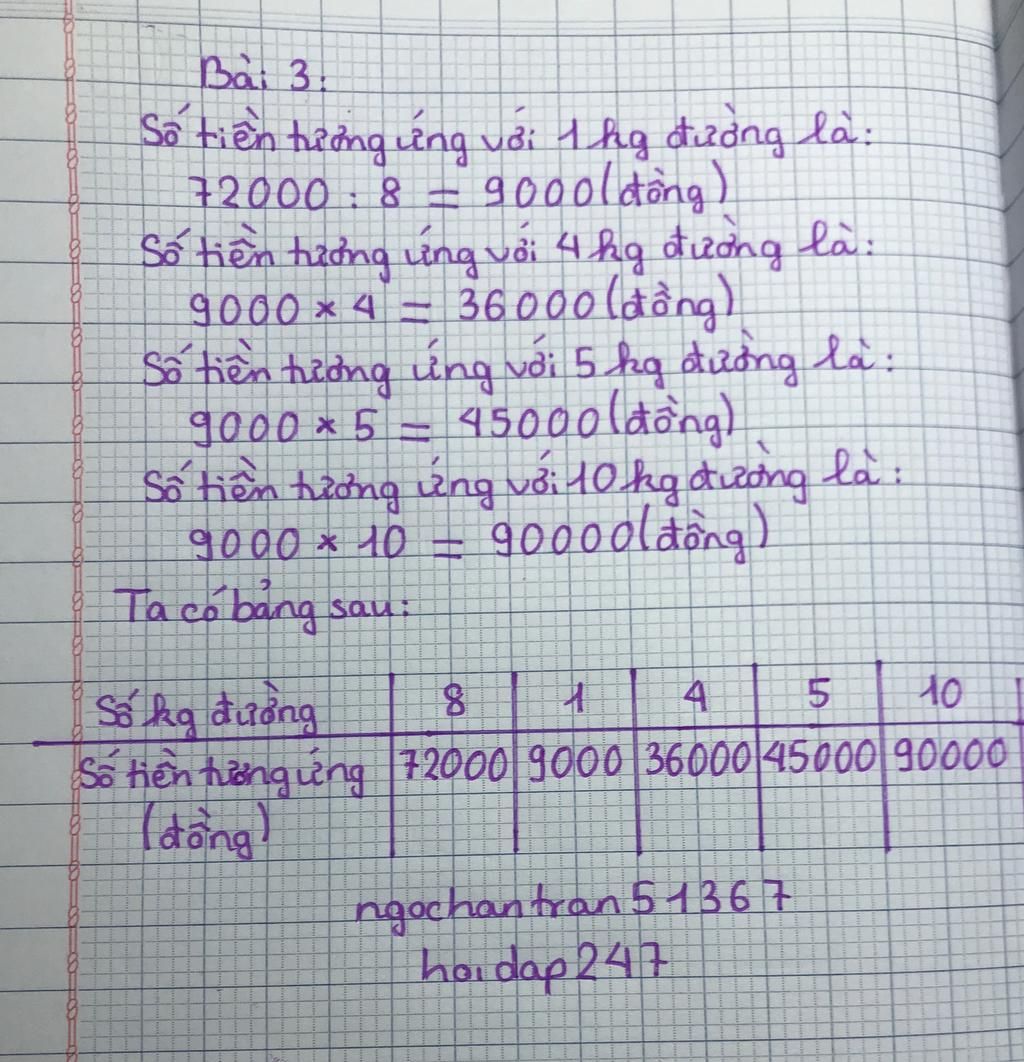 Bài 3:
Số tiền tương ứng với 1 kg đường là:
72000 : 8 = 9000 (đồng)
Số tiền tương ứng với 4 kg đường là:
9000 × 4 = 36000 (đồng)
Số tiền tương ứng với 5 kg đường là:
9000 × 5 = 45000 (đồng)
Số tiền tương ứng với 10 kg đường là:
9000 × 10 = 90000 (đồng)
Ta có bảng sau:
Số kg đường 8 1 4 5 10
Số tiền tương ứng 72000 9000 36000 45000 90000
(đồng)
ngochantran51367
hoidap247